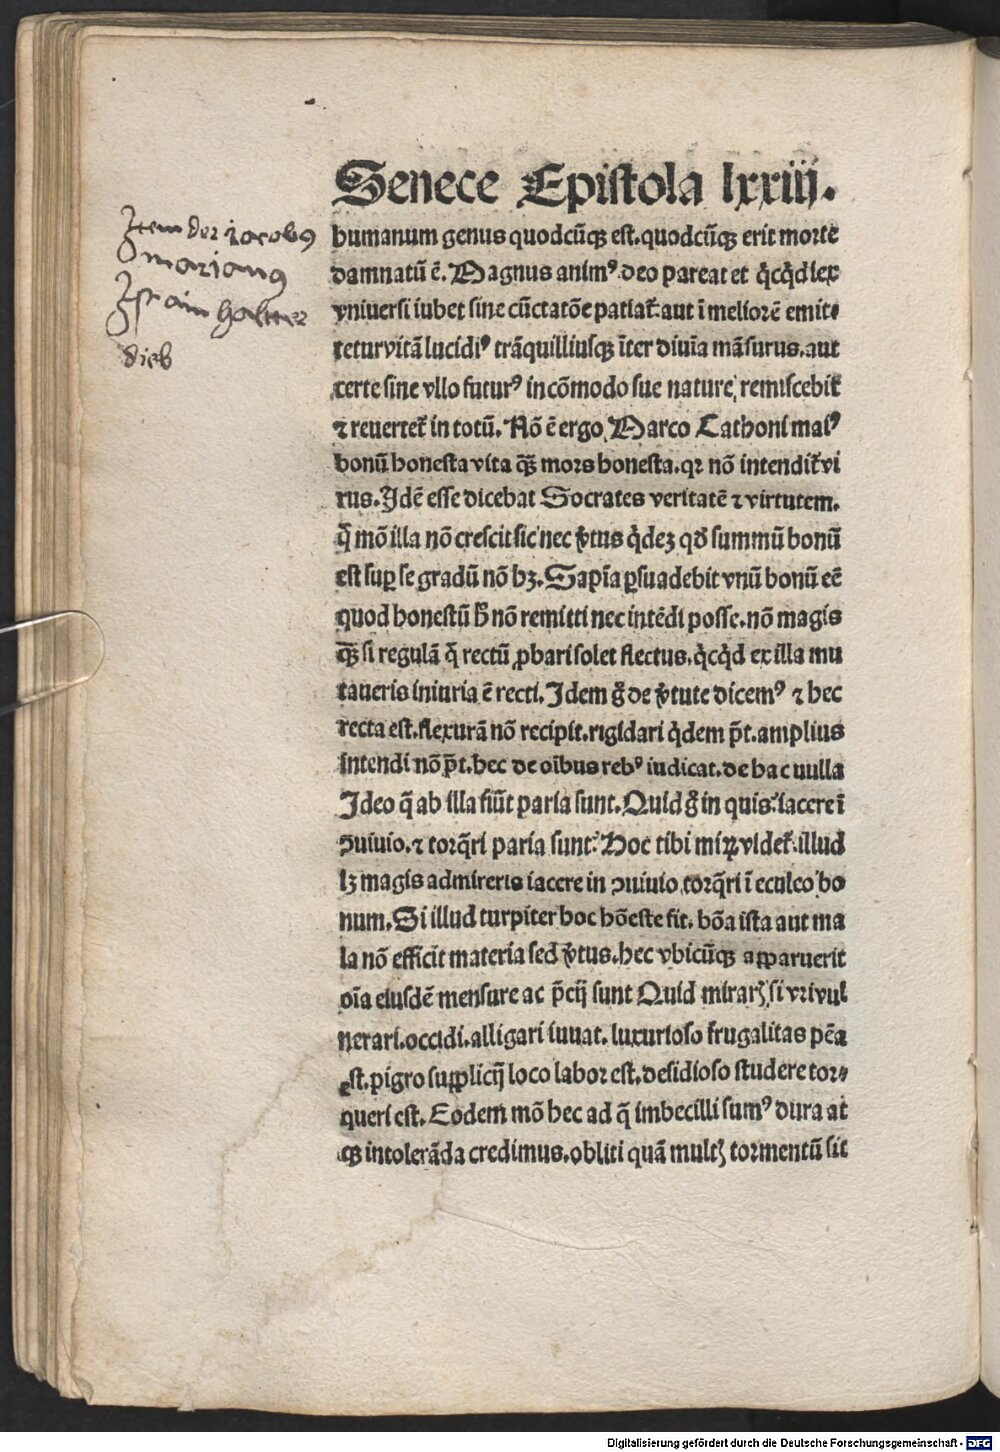 Senece Epistola lxxiij.
Item der iacobus
marianus
Ist ain
dieb
humanum genus quodcūqꝫ est.quodcūqꝫ erit morte
damnatū ē. Magnus animꝰ.deo pareat et q̇cq̇d lex
vniuersi iubet sine cūctatōe patiať.aut ī meliorē emit⸗
tetur vitā lucidiꝰ trāquilliusqꝫ īter diuīa māsurus.aut
certe sine vllo futurꝰ incōmodo sue nature remiscebiť
⁊ reuerteť in totū. Nō ē ergo Marco Cathoni maiꝰ
bonū honesta vita qꝫ̄ mors honesta.qr nō intendiť vi
rus.Idē esse dicebat Socrates veritatē ⁊ virtutem.
q̄ mō illa nō crescit sic nec v̄tus q̇deꝫ qd̓ summū bonū
est suꝑ se gradū nō hꝫ. Sapīa ꝑsuadebit vnū bonū eē
quod honestū h̄ nō remitti nec intēdi posse.nō magis
qꝫ̄ si regulā q̄ rectū ꝓbari solet flectus.q̇cq̇d ex illa mu
taueris iniuria ē recti.Idem g̊ de v̄tute dicemꝰ ⁊ hec
recta est.flexurā nō recipit.rigidari q̇dem p̄t.amplius
intendi nō p̄t.hec de oībus rebꝰ iudicat.de hac nulla
Ideo q̄ ab illa fiūt paria sunt. Quid g̊ in quis:iacere ī
ꝯuiuio.⁊ torq̄ri paria sunt: Hoc tibi miꝝ videť.illud
lꝫ magis admireris iacere in ꝯuiuio torq̄ri ī eculeo bo
num. Si illud turpiter hoc hōeste fit. bōa ista aut ma
la nō efficit materia sed v̄tus.hec vbicūqꝫ apparuerit
oīa eiusdē mensure ac p̄cij sunt Quid mirarꝭ si vri vul
nerari.occidi.alligari iuuat. luxurioso frugalitas pēa
est.pigro supplicij loco labor est.desidioso studere tor⸗
queri est. Eodem mō hec ad q̄ imbecilli sumꝰ dura at
qꝫ intolerāda credimus.obliti quā multꝭ tormentū sit
Digitalisierung gefördert durch die Deutsche Forschungsgemeinschaft - DFG